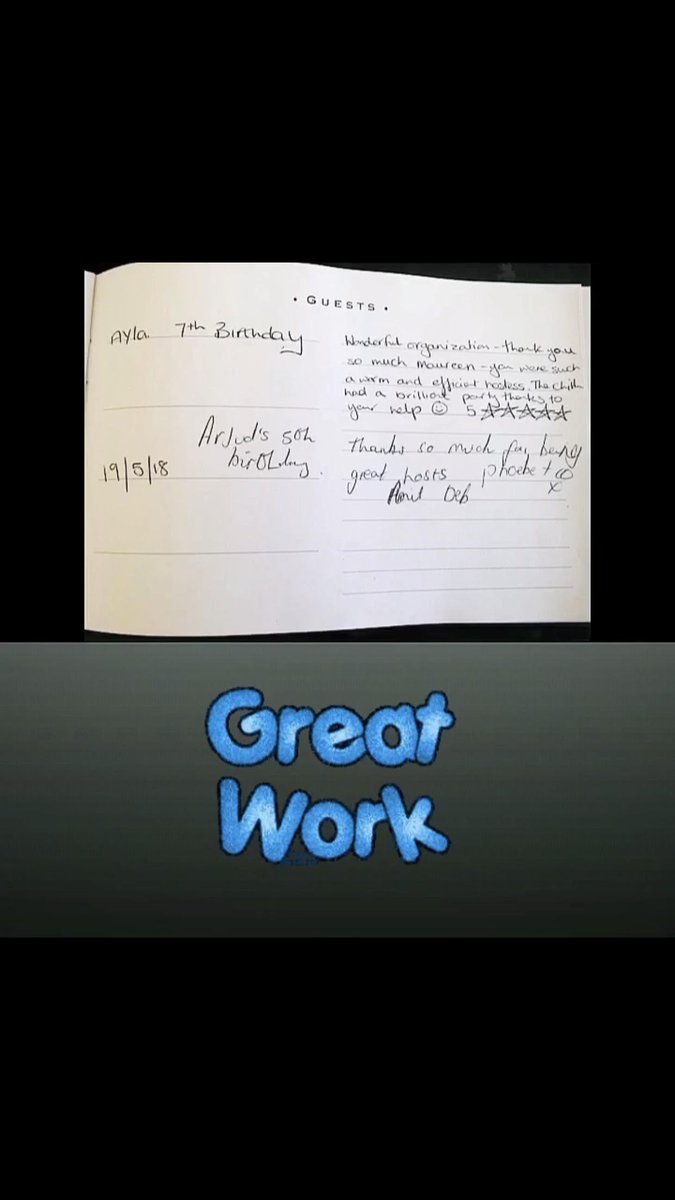 • GUESTS •
Ayla 7th Birthday
Wonderful organization - thank you
so much Maureen - you were such
a warm and efficient hostess. The chilln
had a brilliant party thanks to
your help ☺ 5 ☆☆☆☆☆
19/5/18
5th
birthday.
thanks so much for being
great hosts Phoebe + co
x
Deb
Great
Work